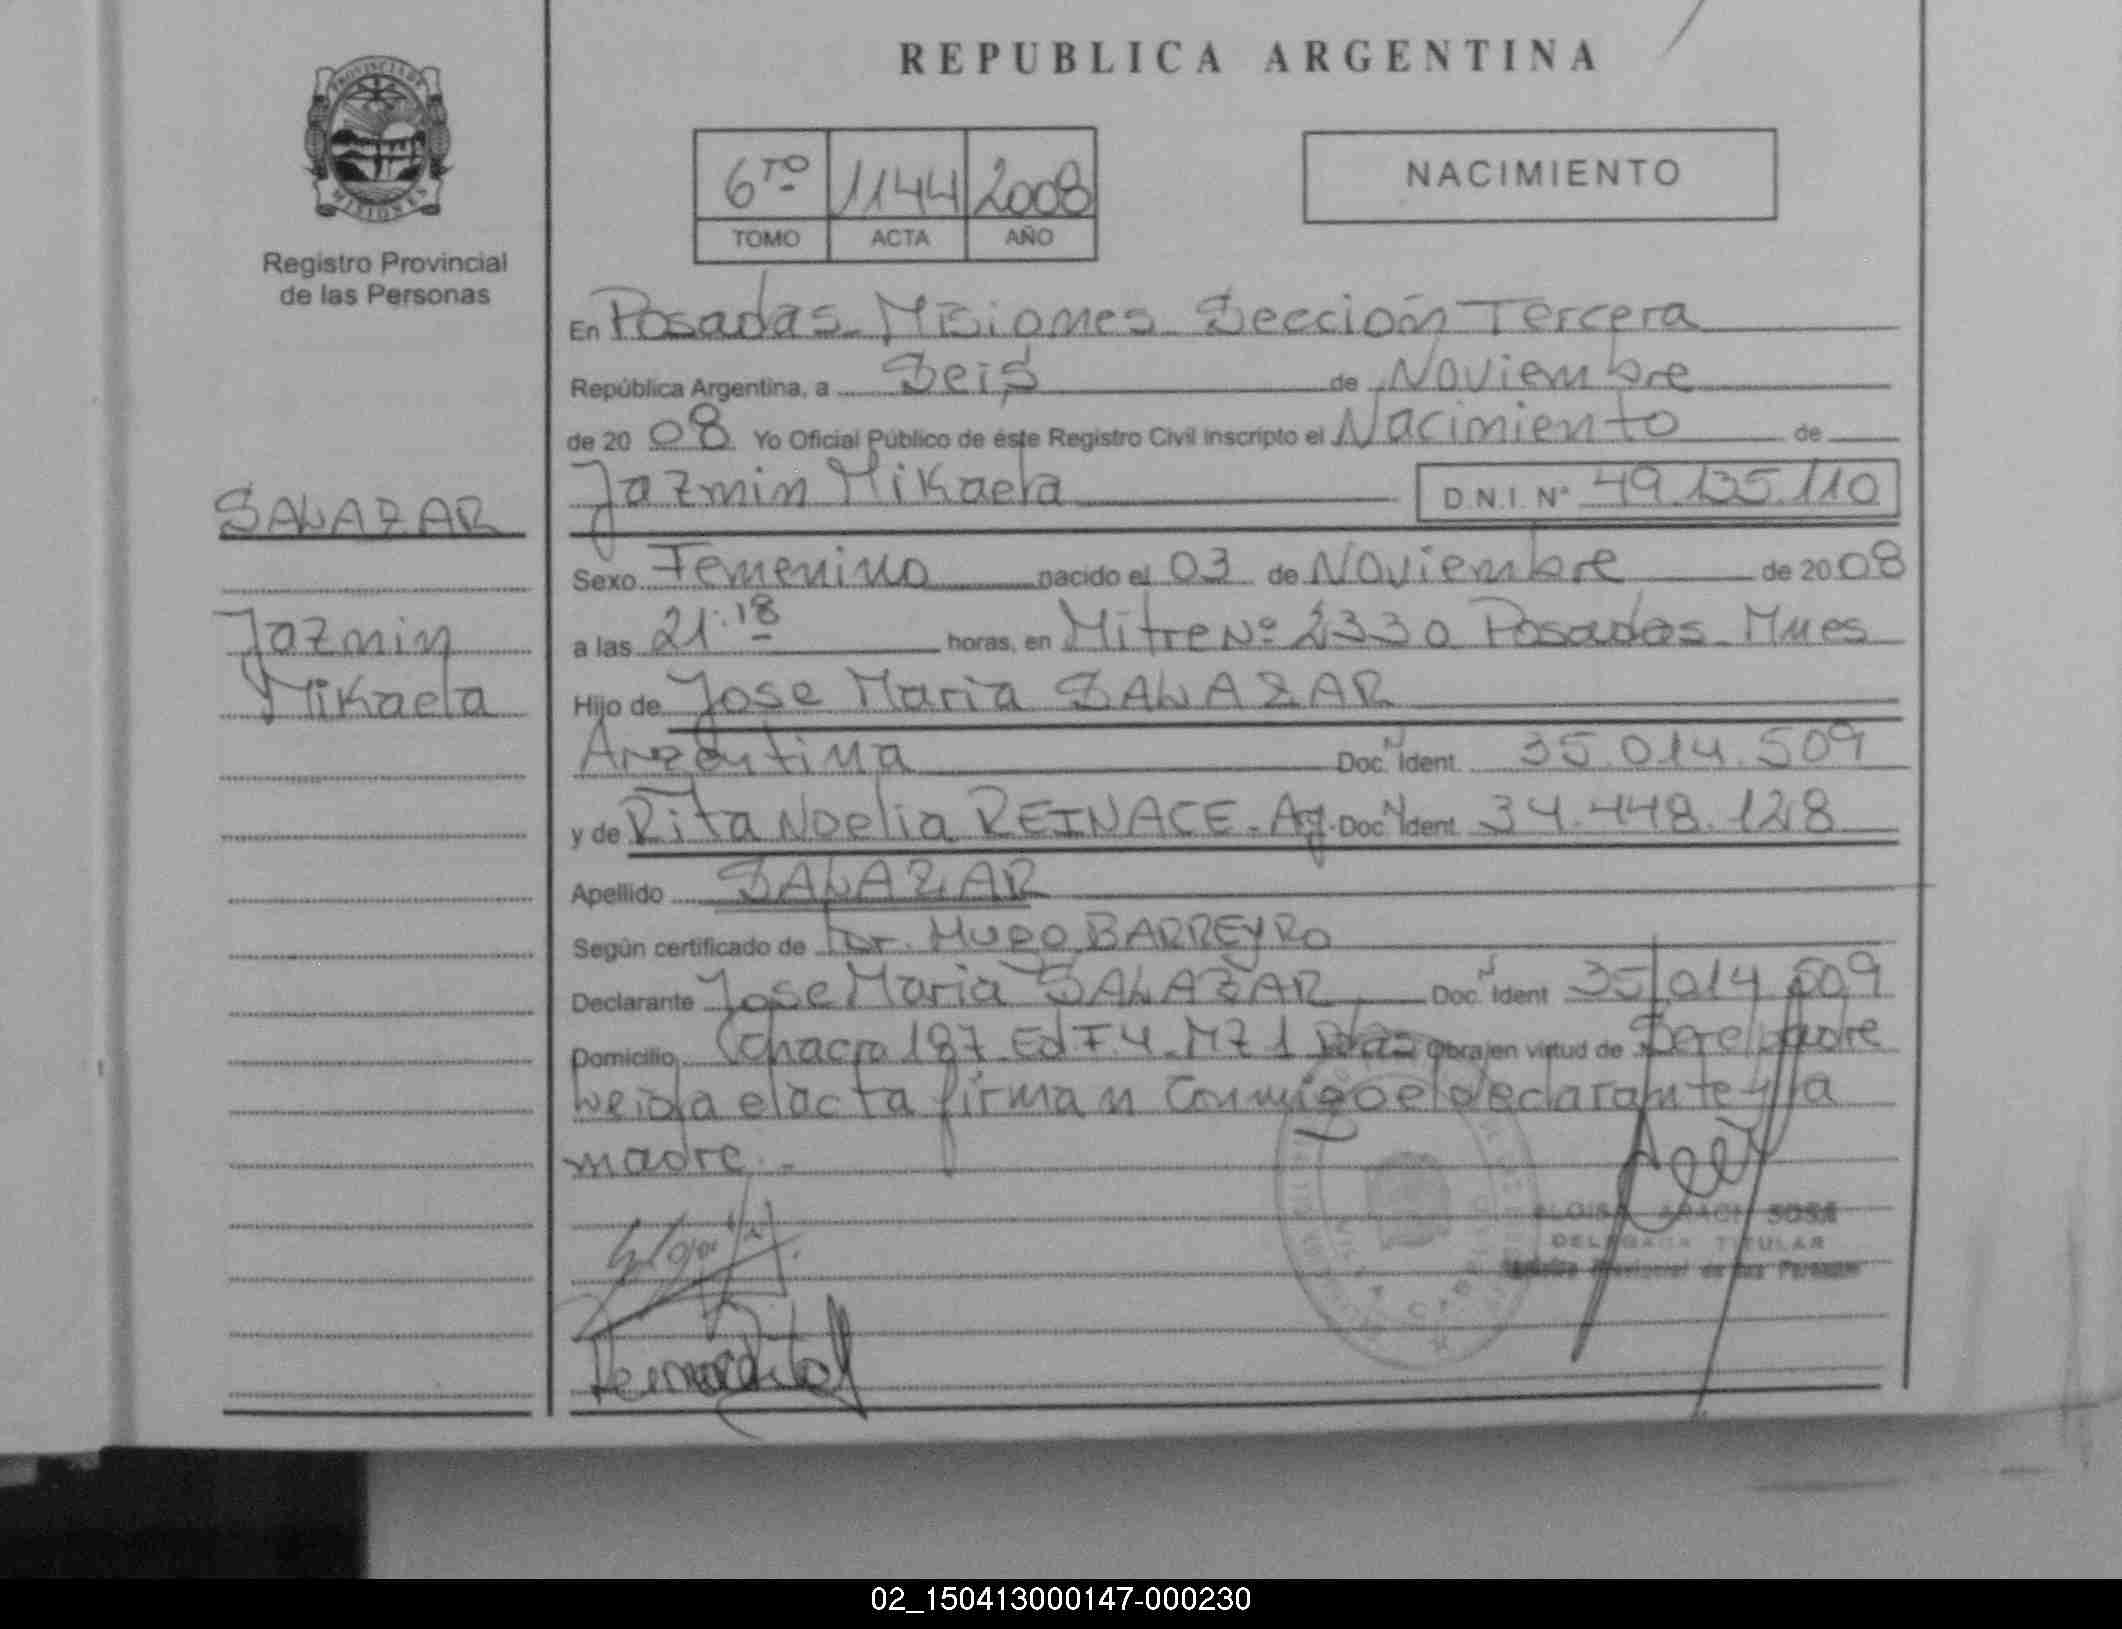 REPUBLICA ARGENTINA
PROVINCIA DE
MISIONES
Registro Provincial
de las Personas
6TO 1144 2008
TOMO ACTA AÑO
NACIMIENTO
En Posadas Misiones Sección Tercera
República Argentina, a Seis de Noviembre
de 20 08 Yo Oficial Público de éste Registro Civil inscripto el Nacimiento de
Jazmin Mikaela D.N.I. Nº 49.135.110
SALAZAR
Sexo Femenino nacido el 03 de Noviembre de 20 08
Jazmin
a las 21:18 horas, en Mitre Nº 2330 Posadas Mnes
Mikaela
Hijo de Jose Maria SALAZAR
Argentina Doc. Ident. 35.014.509
y de Rita Noelia REINACE. Arg. Doc. Ident. 34.448.128
Apellido SALAZAR
Según certificado de Dr. HUGO BARREYRO
Declarante Jose Maria SALAZAR Doc. Ident 35.014.509
Domicilio Chacra 187 Ed F.4 MZ 1 Pdas Obra en virtud de Ser el padre
Leida el acta firman conmigo el declarante y la
madre.-
SOSA
DELEGADA TITULAR
Registro Provincial de las Personas
02_150413000147-000230